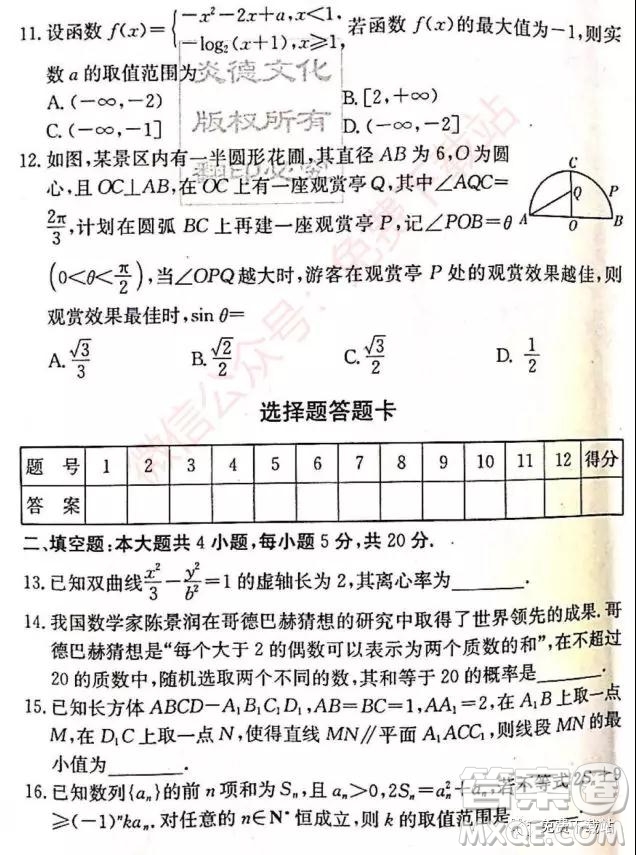 11. 设函数 f(x)={-x²-2x+a, x<1, -log₂(x+1), x≥1, 若函数 f(x)的最大值为-1,则实
数 a 的取值范围为
A. (-∞,-2)  B. [2,+∞)
C. (-∞,-1]  D. (-∞,-2]
炎德文化
版权所有
12. 如图,某景区内有一半圆形花圃,其直径 AB 为 6,O 为圆
心,且 OC⊥AB,在 OC 上有一座观赏亭 Q,其中∠AQC=
2π/3,计划在圆弧 BC 上再建一座观赏亭 P,记∠POB=θ
(0<θ<π/2),当∠OPQ 越大时,游客在观赏亭 P 处的观赏效果越佳,则
观赏效果最佳时,sin θ=
A. √3/3  B. √2/2  C. √3/2  D. 1/2
C
Q
P
A O B
选择题答题卡
题 号 1 2 3 4 5 6 7 8 9 10 11 12 得分
答 案
二、填空题:本大题共 4 小题,每小题 5 分,共 20 分.
13. 已知双曲线 x²/3 - y²/b² =1 的虚轴长为 2,其离心率为______.
14. 我国数学家陈景润在哥德巴赫猜想的研究中取得了世界领先的成果.哥
德巴赫猜想是“每个大于 2 的偶数可以表示为两个质数的和”,在不超过
20 的质数中,随机选取两个不同的数,其和等于 20 的概率是______.
15. 已知长方体 ABCD-A₁B₁C₁D₁,AB=BC=1,AA₁=2,在 A₁B 上取一点
M,在 D₁C 上取一点 N,使得直线 MN∥平面 A₁ACC₁,则线段 MN 的最
小值为______.
16. 已知数列{aₙ}的前 n 项和为 Sₙ,且 aₙ>0,2Sₙ=aₙ²+aₙ,若不等式 2Sₙ+9
≥(-1)ⁿkaₙ. 对任意的 n∈N* 恒成立,则 k 的取值范围是
微信公众号:免费下载站
答案圈
MXQE.COM
免费下载站